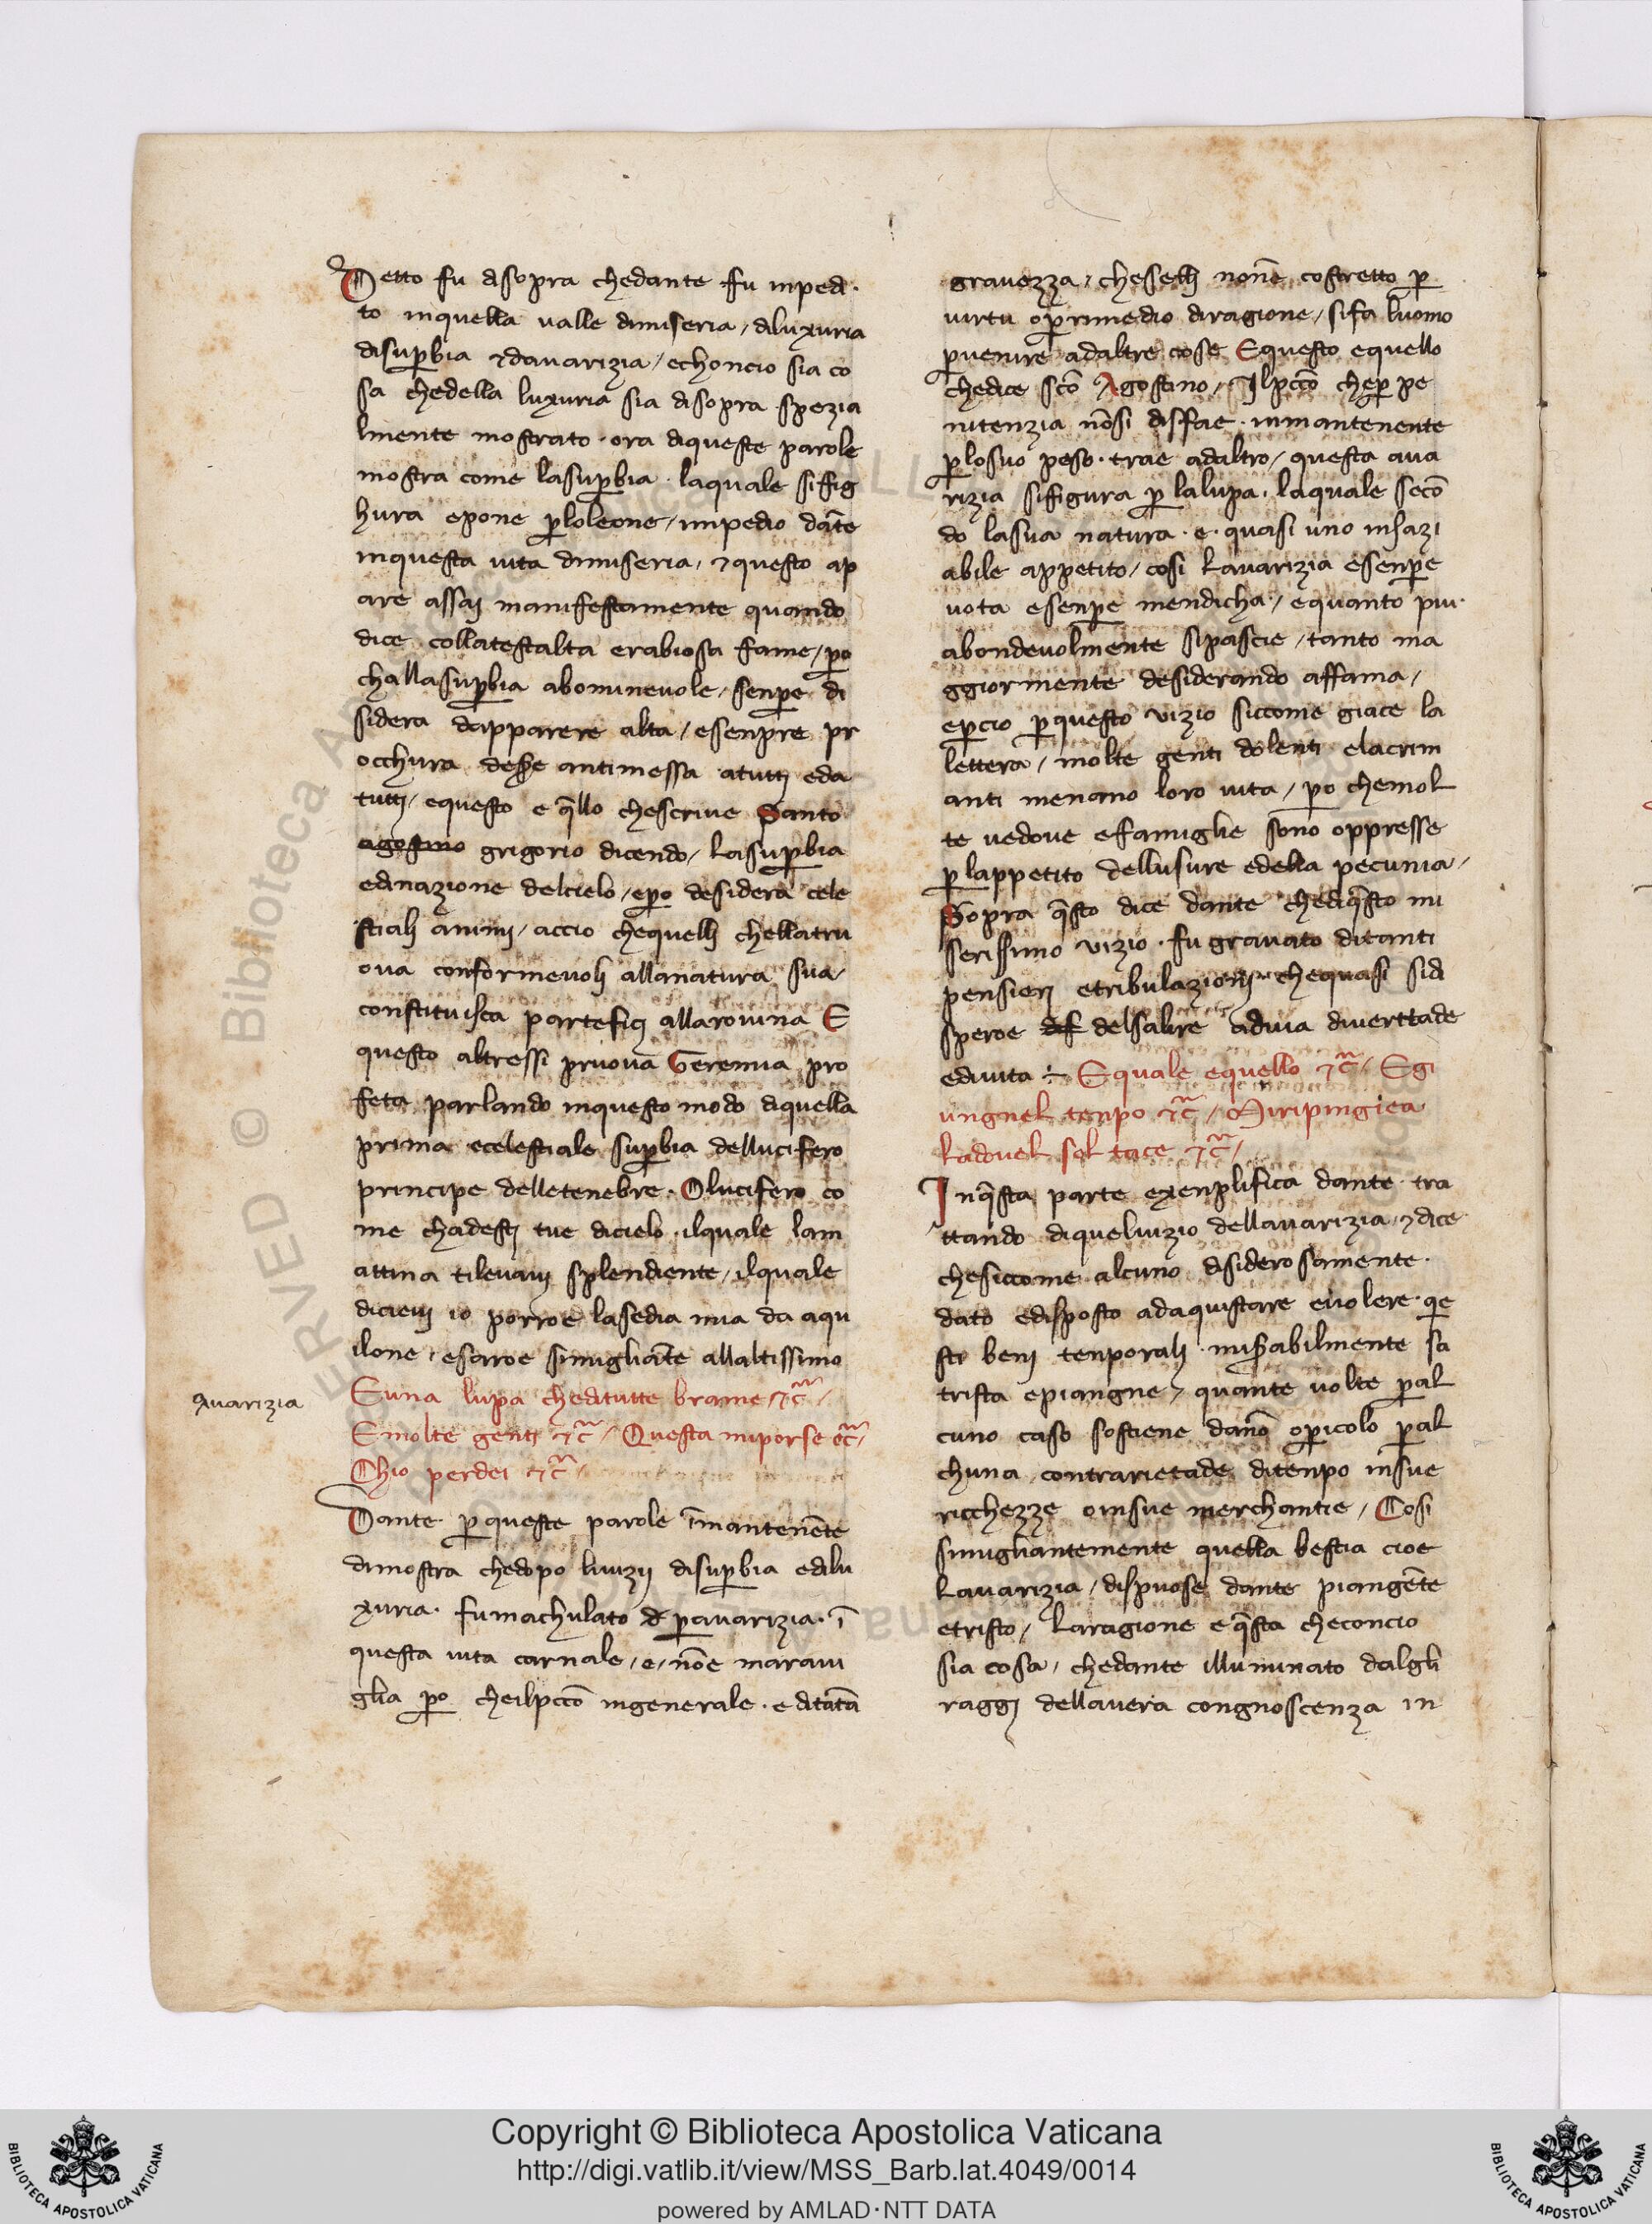 Detto fu disopra chedante fu inpedi
to inquella valle dimiseria / diluxuria
disup̱bia ⁊davarizia / echoncio sia co
sa chedella luxuria sia disopra spezia
lmente mostrato · ora diqueste parole
mostra come lasup̱bia · laquale sifig
hura epone p̱loleone / impedio dāte
inquesta vita dimiseria / ⁊questo ap
are assaj manifestamente quando
dice collatestalta erabiosa fame / p̱o
challasup̱bia abominevole / senp̱e di
sidera dapparere alta / esenpre pr
occhura desse antimessa atuttj eda
tuttj / equesto e q̄llo chescrive Santo
agostino grigorio dicendo / Lasup̱bia
edinazione delcielo / ep̱o desidera cele
stialj animj / accio chequellj chellatru
ova conformevolj allanatura sua /
constituisca parteficj allarovina E
questo altressi pruova Geremia pro
feta parlando inquesto modo diquella
prima ecelestiale sup̱bia dellucifero
principe delletenebre · Olucifero co
me chadestj tue dicielo · ilquale lam
attina tilevavj splendiente / ilquale
dicievj io porroe lasedia mia da aqu
ilone / esaroe simigliāte allaltissimo
Avarizia
Euna lupa cheditutte brame ⁊c̃ /
Emolte genti ⁊c̃ / Questa miporse ec̃ /
Chio perdei ⁊c̃ /
Dante p̱queste parole īmantenēte
dimostra chedopo livizij disup̱bia edilu
xuria · fumachulato d p̱avarizia · ī
questa vita carnale / e / nōe maravi
glia p̱o cheilpcc̄o ingenerale · e ditātā
gravezza / cheselli nonē costretto p̱
virtu op̱rimedio diragione / sifa luomo
p̱venire adaltre cose Equesto equello
chedice sc̄o Agostino / Ilpcc̄o chep̱ pe
nitenzia nōsi disfae · inmantenente
p̱losuo peso · trae adaltro / questa ava
rizia sifigura p̱ lalupa · laquale secō
do lasua natura · e · quasi uno insazi
abile appetito / cosi Lavarizia esenp̱e
vota esenp̱e mendicha / equanto piu ·
abondevolmente sipascie / tanto ma
ggiormente desiderando affama /
ep̱cio p̱questo vizio siccome giace la
lettera / molte genti dolenti elacrim
anti menano loro vita / p̱o chemol
te vedove efamiglie sono oppresse
p̱ lappetito dellusure edella pecunia /
Sopra q̄sto dice dante chediq̄sto mi
serissimo vizio · fu gravato ditanti
pensierj etribulazionj chequasi sidi
speroe df delsalire adivia diverttade
edivita ÷ Equale equello ⁊c̃ / Egi
ungnel tenpo ⁊c̃ / Miripingiea
Ladovel sol tace ⁊c̃ /
Inq̄sta parte exenplifica dante tra
ttando diquelvizio dellavarizia / ⁊dice
chesiccome alcuno disiderosamente ·
dato edisposto adaquistare evolere · q̱e
sti benj tenporalj · mis̱abilmente sa
trista epiangne / quante volte p̱al
cuno caso sostiene danō op̱icolo p̱al
chuna contrarietade ditenpo insue
ricchezze oinsue merchantie / Cosi
simigliantemente quella bestia cioe
Lavarizia / dispuose dante piangēte
etristo / Laragione e q̄sta checoncio
sia cosa / chedante illuminato dalgli
raggj dellavera congnoscenza in
Copyright © Biblioteca Apostolica Vaticana
http://digi.vatlib.it/view/MSS_Barb.lat.4049/0014
powered by AMLAD·NTT DATA
BIBLIOTECA APOSTOLICA VATICANA
BIBLIOTECA APOSTOLICA VATICANA